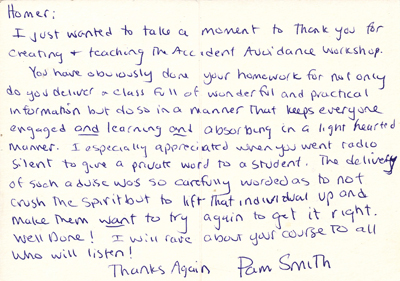 Homer;
I just wanted to take a moment to Thank you for
creating + teaching the Accident Avoidance Workshop.
You have obviously done your homework for not only
do you deliver a class full of wonderful and practical
information but do so in a manner that keeps everyone
engaged and learning and absorbing in a light hearted
manner. I especially appreciated when you went radio
silent to give a private word to a student. The delivery
of such advise was so carefully worded as to not
crush the spirit but to lift that individual up and
make them want to try again to get it right.
Well Done! I will rave about your course to all
who will listen!
Thanks Again Pam Smith